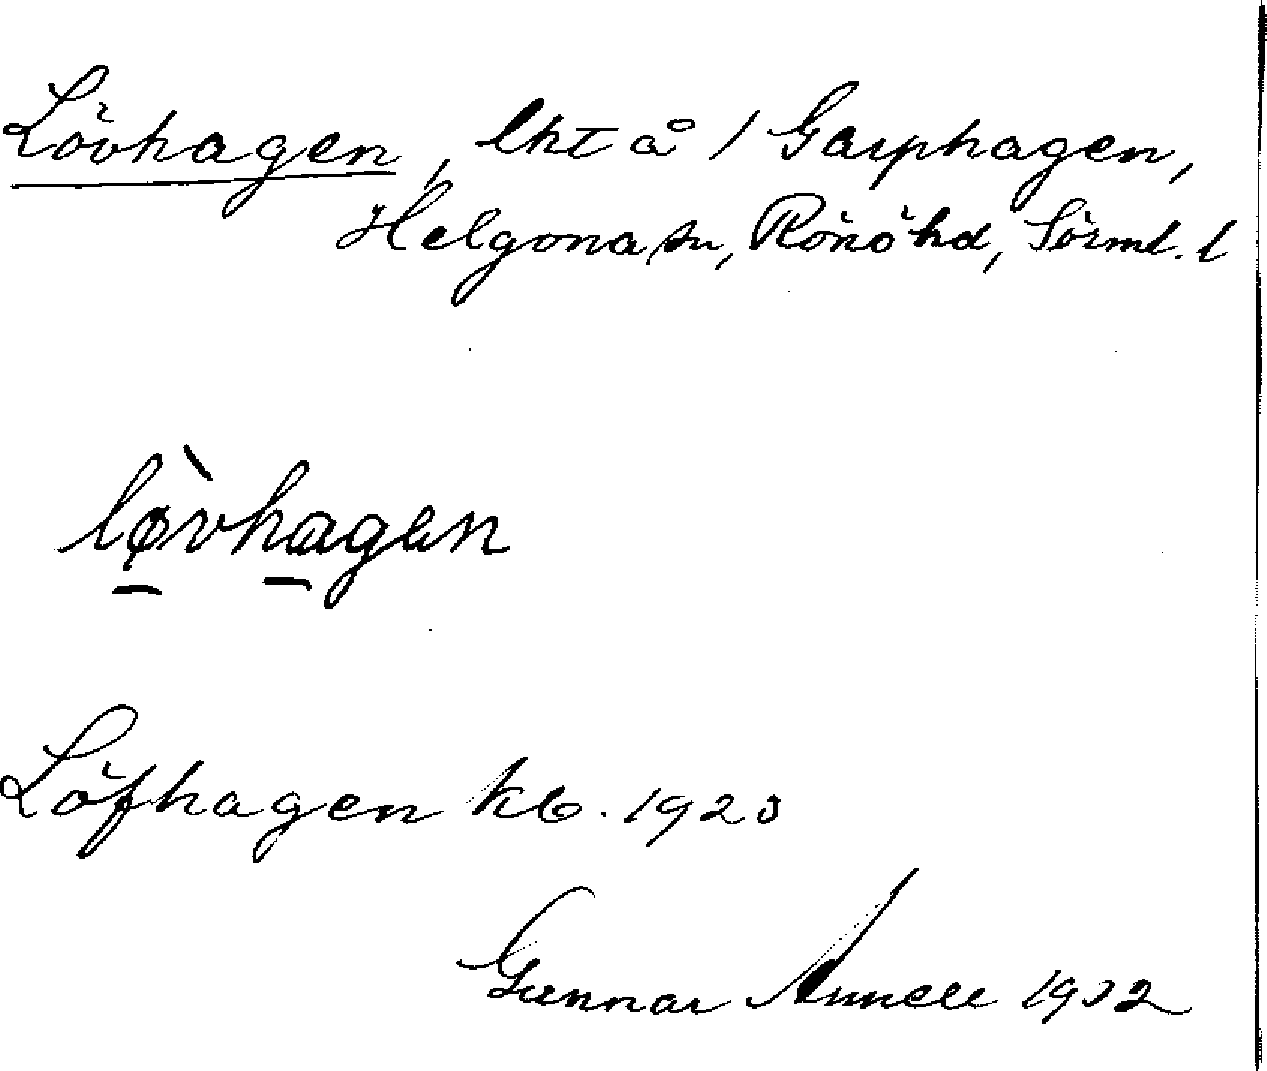 Lövhagen, lht å 1 Garphagen,
Helgona sn, Rönö hd, Sörml. l
lø̀vhagen
Löfhagen kb. 1920
Gunnar Annell 1932